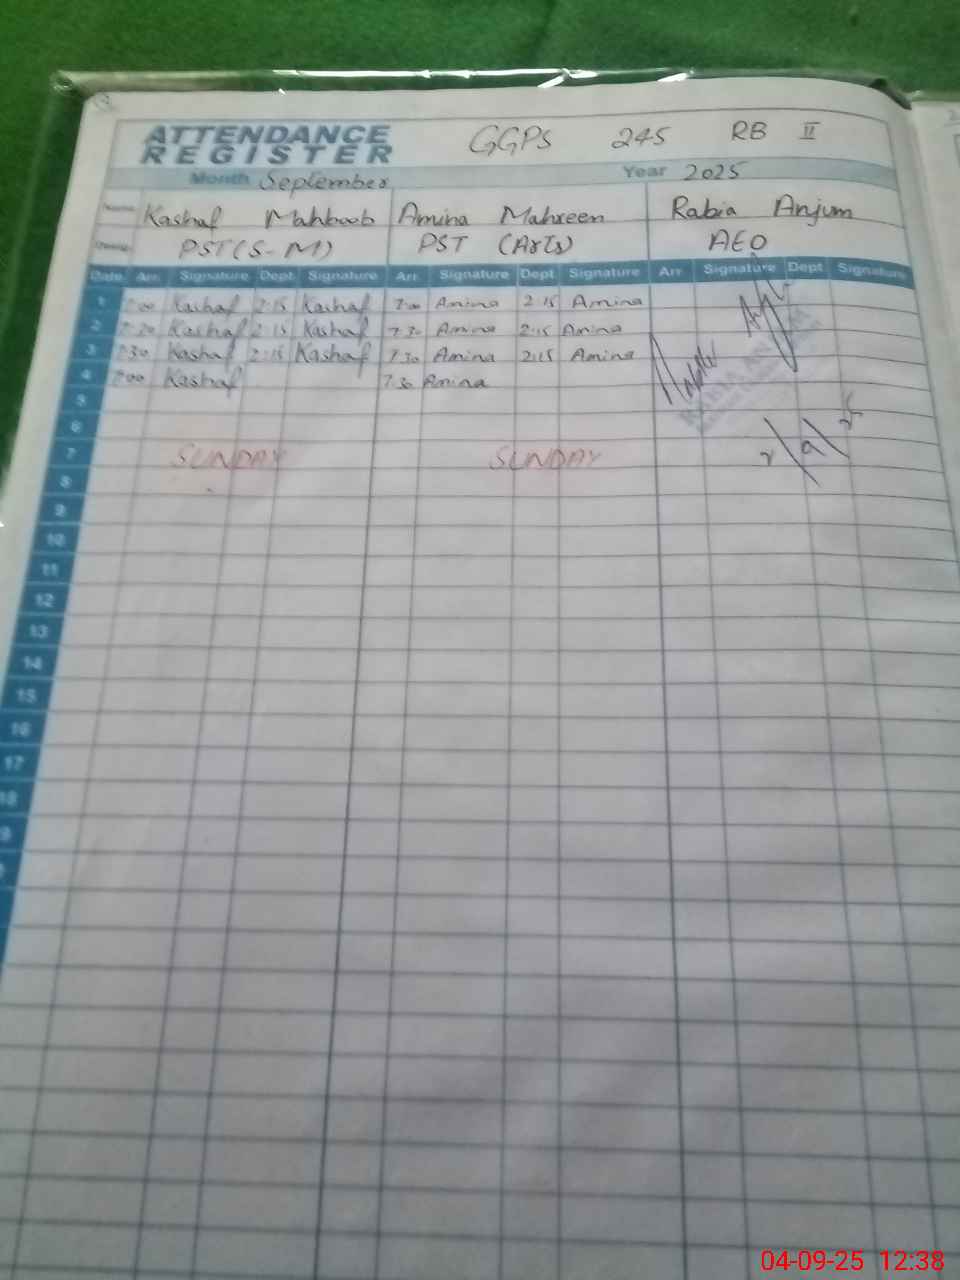 ATTENDANCE REGISTER GGPS 245 RB II
Month September Year 2025
Name Kashaf Mahboob Amina Mahreen Rabia Anjum
PST (S-M) PST (Arts) AEO
Date Arr. Signature Dept. Signature Arr. Signature Dept Signature Arr. Signature Dept Signature
1 7:00 Kashaf 2:15 Kashaf 7:00 Amina 2:15 Amina
2 7:20 Kashaf 2:15 Kashaf 7:30 Amina 2:15 Amina
3 7:30 Kashaf 2:15 Kashaf 7:30 Amina 2:15 Amina
4 7:00 Kashaf 7:30 Amina
5
6
7 SUNDAY SUNDAY
8
9
10
11
12
13
14
15
16
17
18
04-09-25 12:38